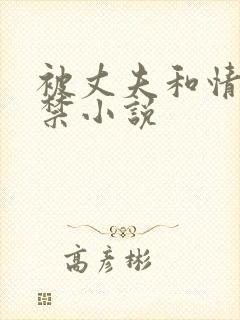 被丈夫和情
禁小说
高彦彬